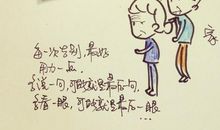 每一次告别,最好
用力一点.
多说一句,可能就是最后一句,
多看一眼,可能就是最后一眼...
家